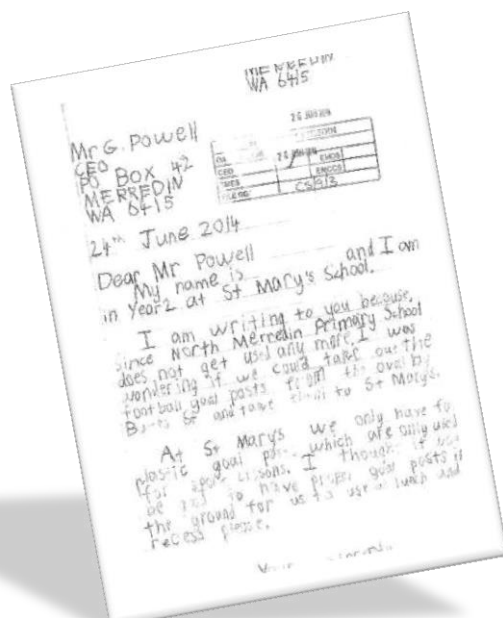 MERREDIN
WA 6415
26 JUN 2014
Mr G. Powell
CEO
PO BOX 42
MERREDIN
WA 6415
CEO 26 JUN 2014 EMDS
EMCS
CS/9/3
24th June 2014
Dear Mr Powell
My name is and I am
in Year 2 at St Mary's School.
I am writing to you because,
since North Merredin Primary School
does not get used any more, I was
wondering if we could take out the
football goal posts from the oval by
St and take them to St Mary's.
At St Mary's we only have to
plastic goal which are only used
for sport lessons. I thought it
be to have proper goal posts in
the ground for us to use at lunch and
recess please.